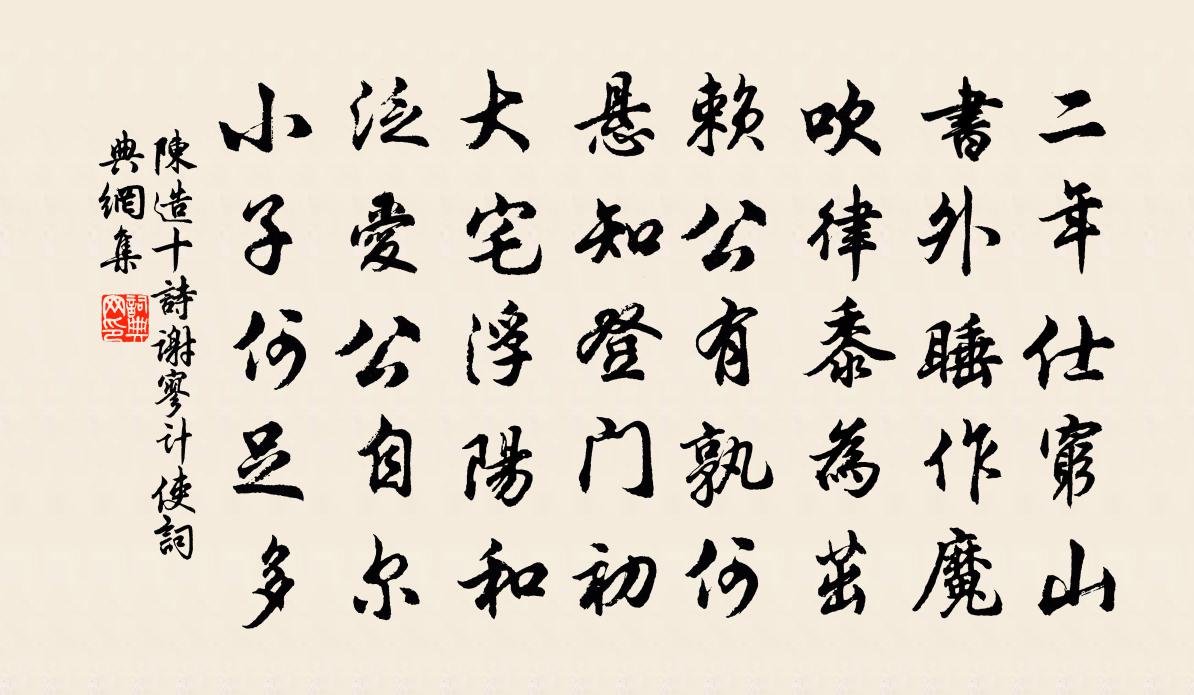 二年仕窮山
書外睡作魔
吹律黍為茁
賴公有孰何
悬知登门初
大宅浮陽和
泛愛公自尔
小子何足多
陳造十詩謝寥计使詞
典網集
詞典
网印